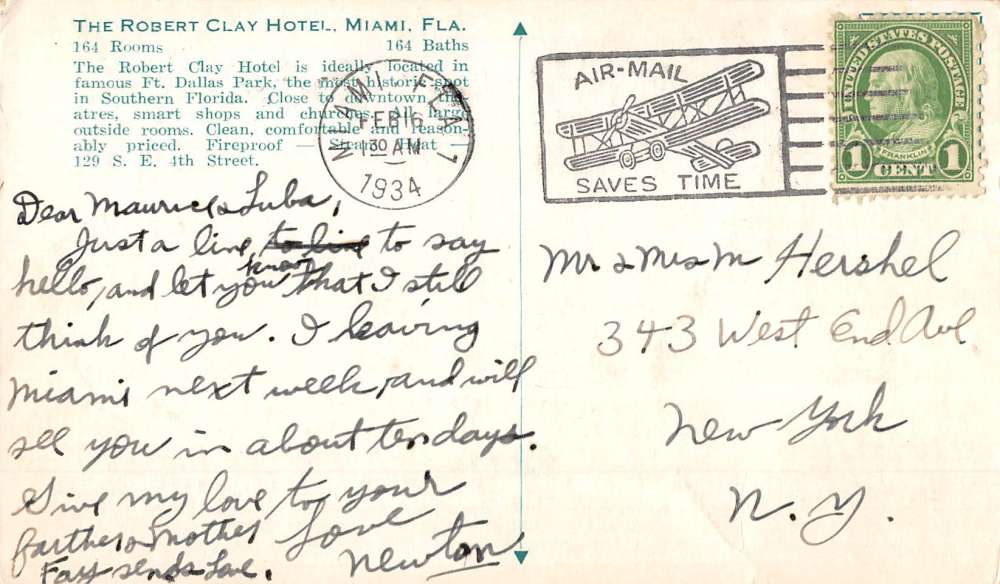 THE ROBERT CLAY HOTEL, MIAMI, FLA.
164 Rooms 164 Baths
The Robert Clay Hotel is ideally located in
famous Ft. Dallas Park, the most historic spot
in Southern Florida. Close to downtown the-
atres, smart shops and churches. All large
outside rooms. Clean, comfortable and reason-
ably priced. Fireproof — Steam Heat —
129 S. E. 4th Street.
MIAMI FLA 1
FEB 16
1 30 AM
1934
AIR-MAIL
SAVES TIME
UNITED STATES POSTAGE
FRANKLIN
1 CENT 1
Dear Maurice & Luba,
Just a line, to line to say
hello, and let you know that I still
think of you. I leaving
Miami next week, and will
see you in about ten days.
Give my love to your
farther & Mother Love
Fay sends Love. Newton
Mr & Mrs M Hershel
343 West End. Ave
New York
N. Y.